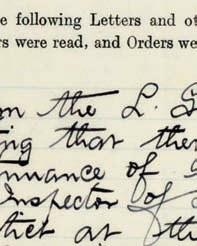 e following Letters and ot
rs were read, and Orders we
om the L. G
ing that ther
nuance of
Inspector of
trict at th